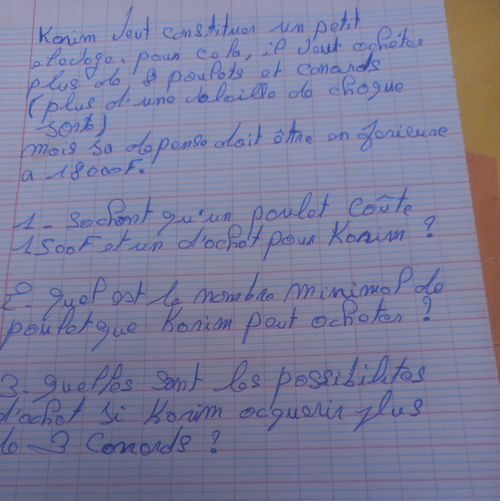 Karim veut constituer un petit
élevage. pour cela, il veut acheter
plus de 8 poulets et canards
(plus d'une volaille de chaque
sorte)
mais sa depense doit être en
a 18000F.
1 - Sachant qu'un poulet coûte
1500F et un d'achat pour Karim ?
2. quel est le nombre minimal de
poulet que Karim peut acheter ?
3. quelles sont les possibilités
d'achat si Karim acquerir plus
de 3 canards ?